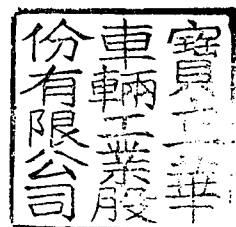 寶工華
車輛工業股
份有限公司